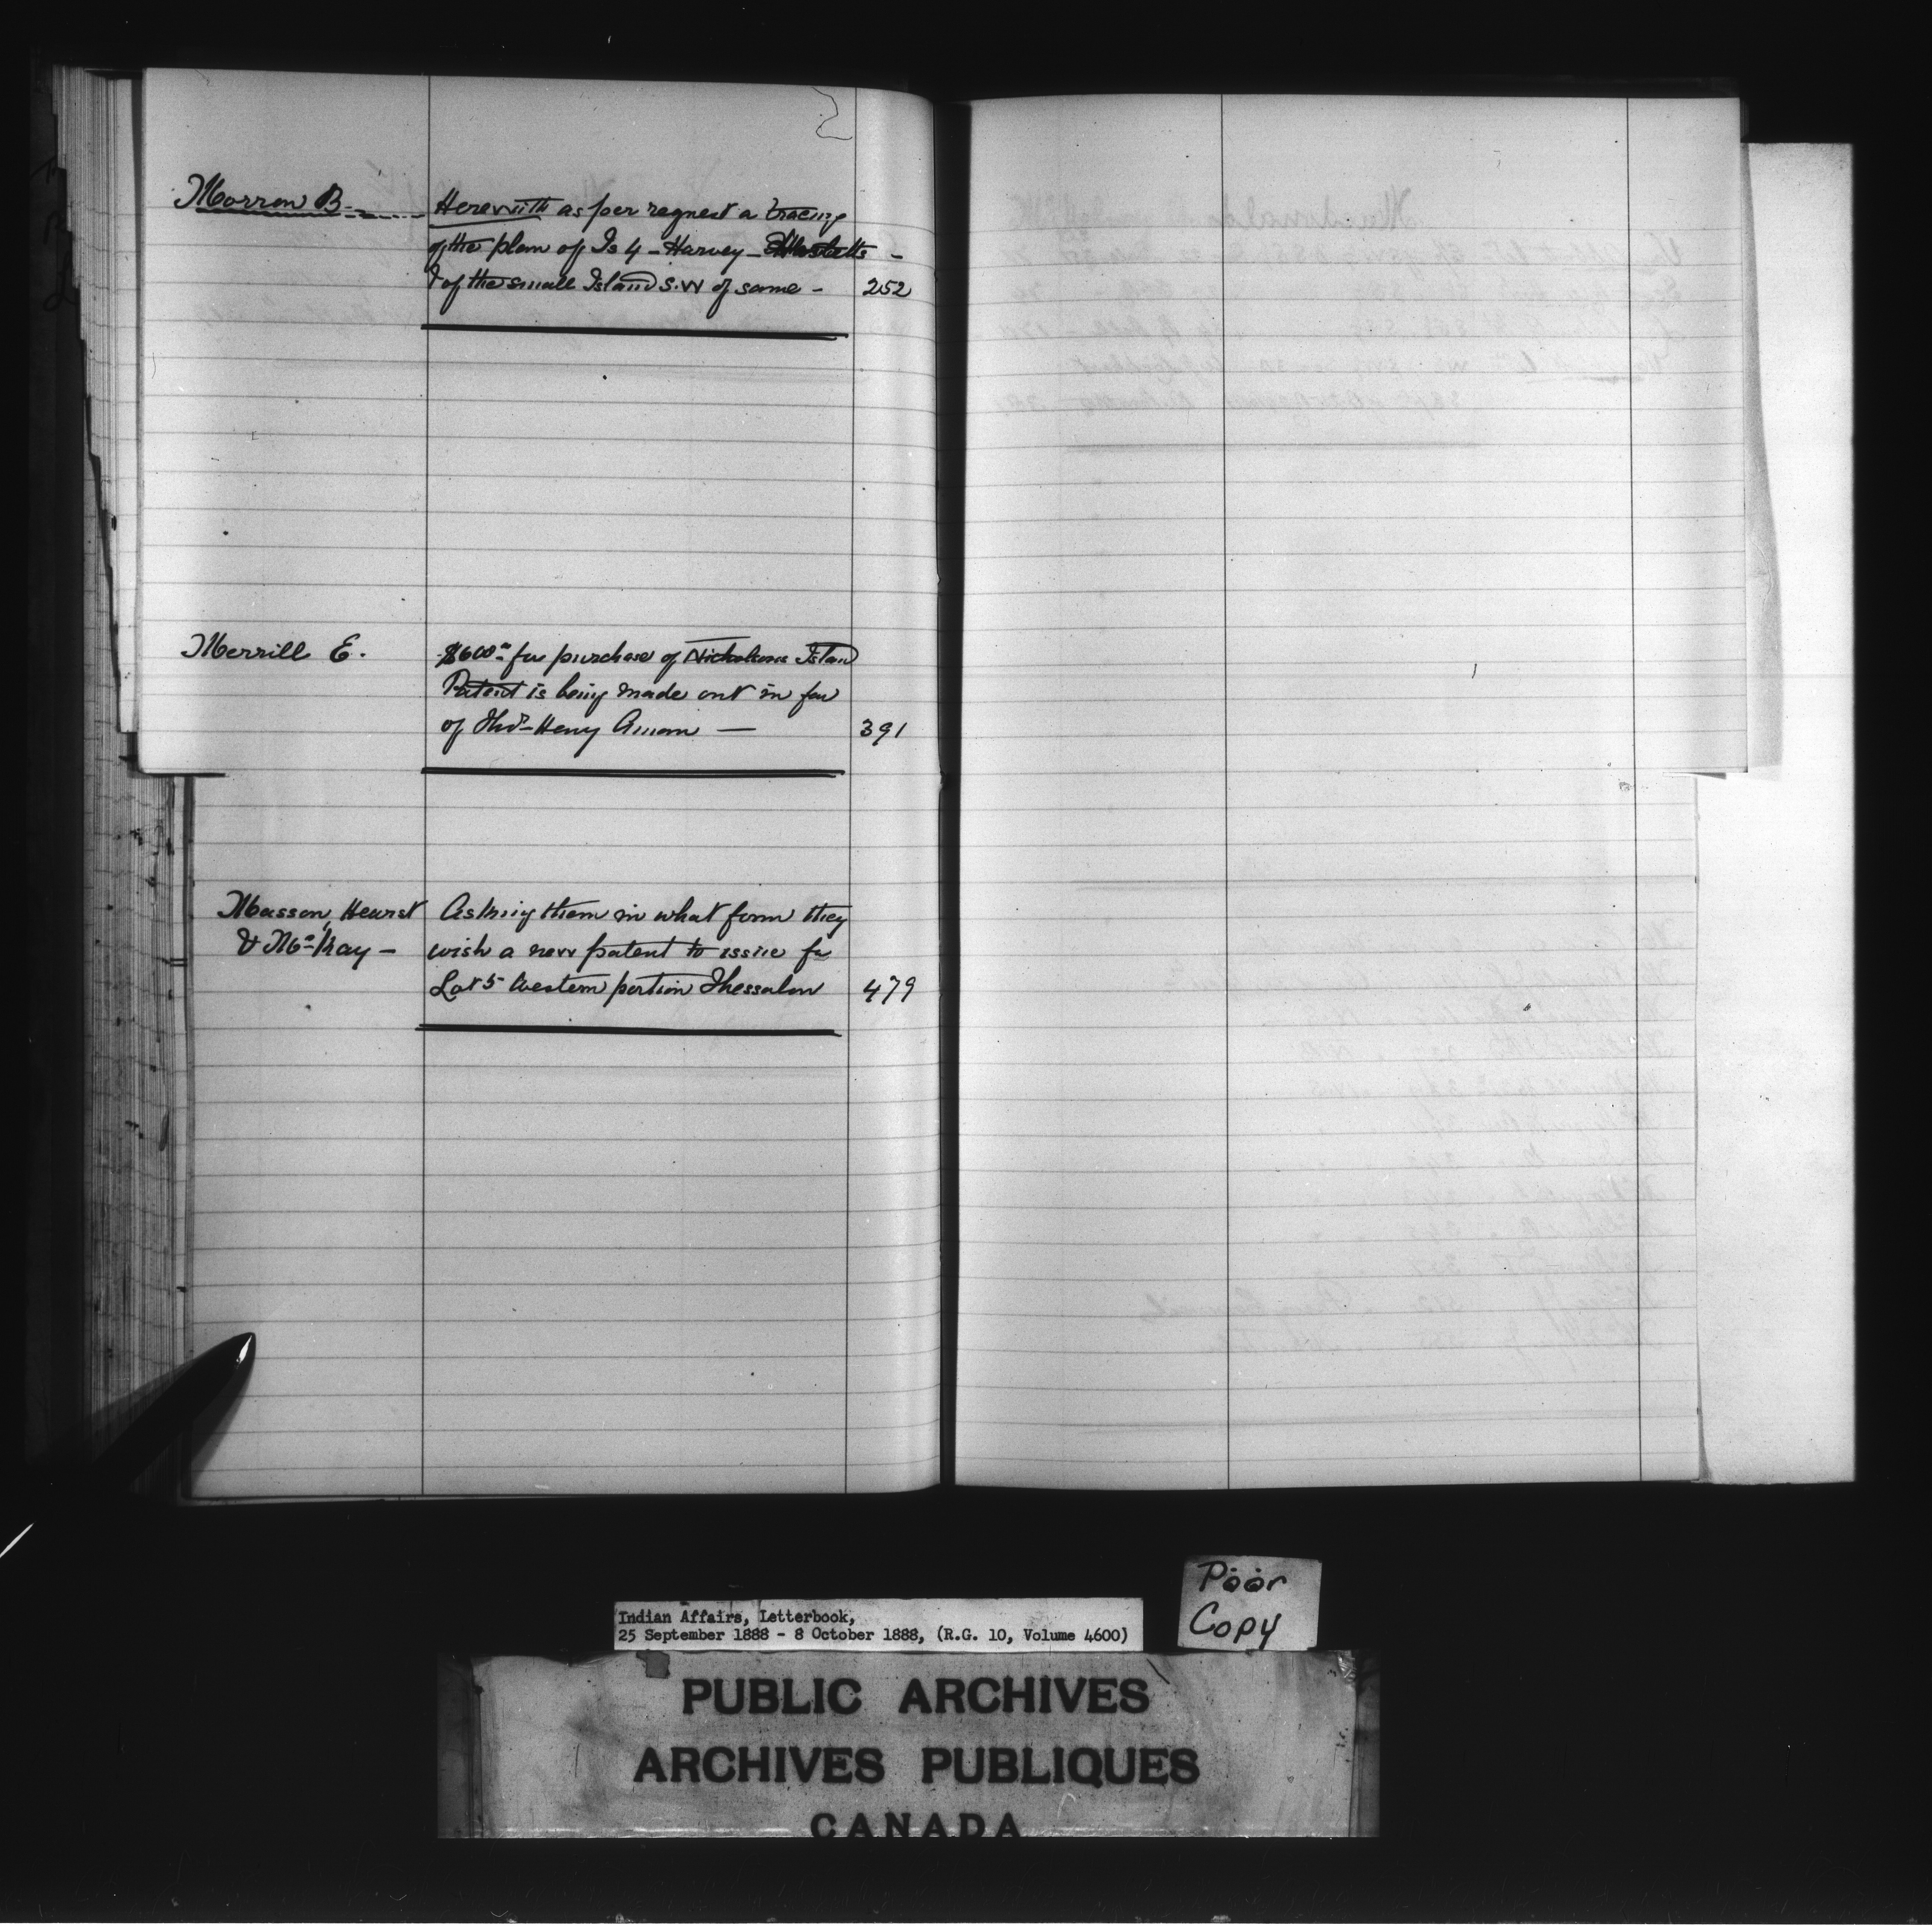 Morron B. Herewith as per request a tracing
of the plan of Is 4 - Harvey -
& of the small Island S.W of same - 252
Merrill E. $600 for purchase of Nicholsons Island
Patent is being made out in fav
of Thos Henry 391
Masson, Hearst Asking them in what form they
& McKay - wish a new patent to issue for
Lot 5 Western portion Thessalon 479
Poor
Copy
Indian Affairs, Letterbook,
25 September 1888 - 8 October 1888, (R.G. 10, Volume 4600)
PUBLIC ARCHIVES
ARCHIVES PUBLIQUES
CANADA